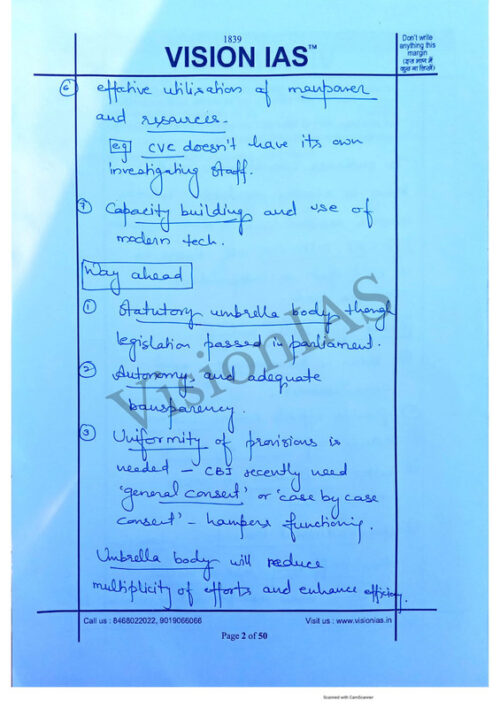 1839
VISION IAS™
Don't write
anything this
margin
(इस भाग में
कुछ ना लिखें)
⑥ effative utilisation of manpower
and resources.
eg CVC doesn't have its own
investigating staff.
⑦ Capacity building and use of
modern tech.
Way ahead
① Statutory umbrella body though
legislation passed in parliament.
② Autonomy and adequate
transparency.
③ Uniformity of provisions is
needed – CBI recently need
'general consent' or 'case by case
consent' – hampers functioning.
Umbrella body will reduce
multiplicity of efforts and enhance efficiency.
VisionIAS
Call us : 8468022022, 9019066066
Visit us : www.visionias.in
Page 2 of 50
Scanned with CamScanner